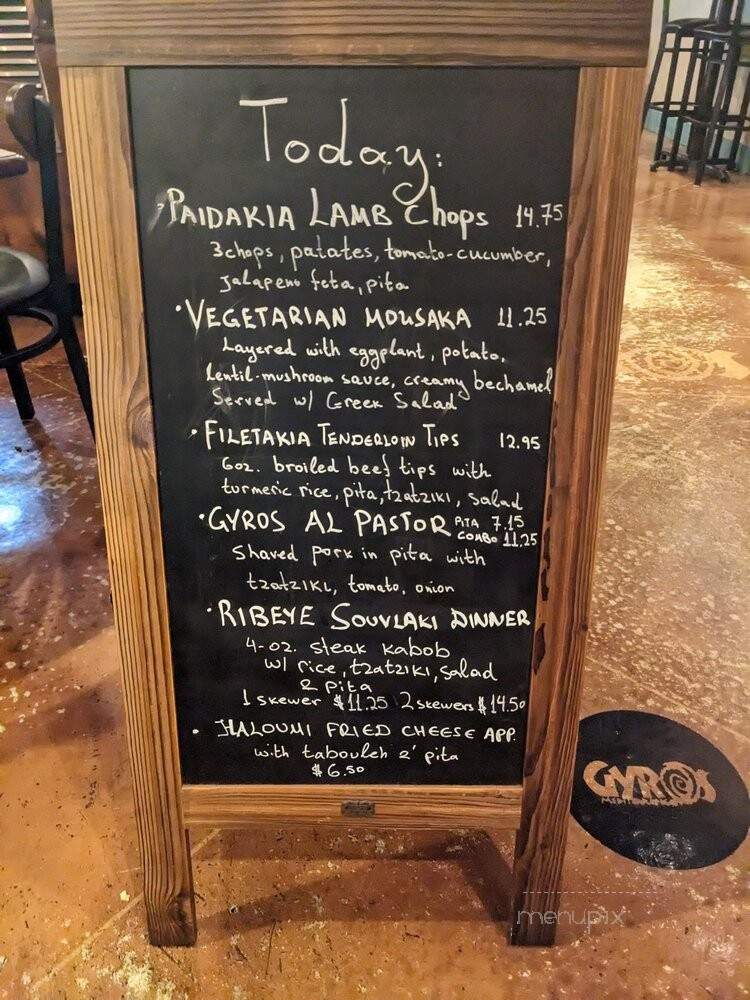 Today:
PAIDAKIA LAMB Chops 14.75
3chops, patates, tomato-cucumber,
Jalapeno feta, pita
• VEGETARIAN MOUSAKA 11.25
Layered with eggplant, potato,
lentil-mushroom sauce, creamy bechamel
Served w/ Greek Salad
• FILETAKIA TENDERLOIN TIPS 12.95
6oz. broiled beef tips with
turmeric rice, pita, tzatziki, salad
• GYROS AL PASTOR PITA 7.15
COMBO 11.25
Shaved pork in pita with
tzatziki, tomato, onion
• RIBEYE SOUVLAKI DINNER
4-oz. steak kabob
w/ rice, tzatziki, salad
& pita
1 skewer $11.25 2 skewers $14.50
• HALOUMI FRIED CHEESE APP.
with tabouleh & pita
$6.50
GYROS
menupix